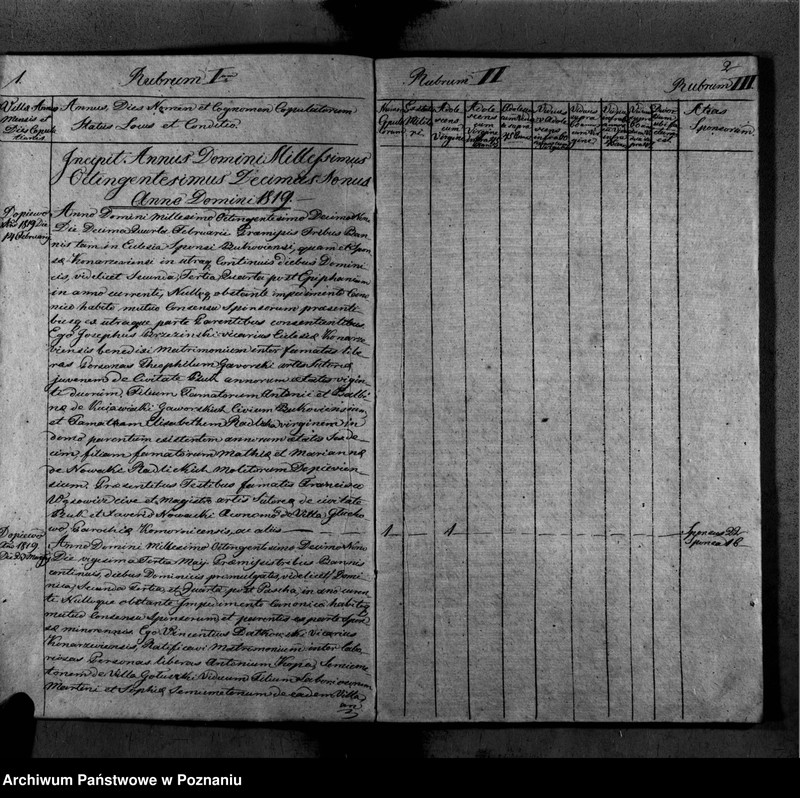 1.
Rubrum I
Villa Annus Mensis et Dies Copulationis
Annus, Dies Nomen et Cognomen Copulatorum
Status Locus et Conditio
Incipit Annus Domini Millessimus
Octingentesimus Decimus Nonus
Anno Domini 1819.
Dopiewo
Ano 1819 Die
14 February
Anno Domini Millesimo Octingentesimo Decimo No
Die Decima Quarta Februarii Praemissis Tribus Ban
nis tam in Eclesia Sponsi Bukoviensi, quam et Spon
sae Konarzeviensi in utraq continuis diebus Domini
cis, videlicet Secunda, Tertia, Quarta post Epiphaniam
in anno currente, Nulloq obstante impedimento Cano
nico habito mutuo Consensu Sponsorum praesenti
busq ex utraque parte Parentibus consentientibus
Ego Josephus Brzezinski vicarius Eclesiae Konarze
viensis benedixi Matrimonium inter famatos libe
ras Personas Theophilum Gavorski artis Sutoriae
juvenem de Civitate Buk annorum aetatis vigin
ti duorum, Filium Famatorum Antonii et Balbi
nae de Kujawski Gaworskich Civium Bukoviensium
et Famatam Elisabethem Radlicka virginem in
domo parentum existentem annorum aetatis Sex de
cim, filiam famatorum Mathiae et Mariannae
de Nowacki Radlickich Molitorum Dopievien
sium. Praesentibus Testibus famatis Francisco
cive et Magistro artis Sutoriae de civitate
Buk et Xaverio Nowacki Aeconomo de Villa
Parochiae Komornicensis, ac aliis
Dopiewo
Ano 1819
Die 23 Maij
Anno Domini Millesimo Octingentesimo Decimo Nono
Die vigesima Tertia Maij Praemissis tribus Bannis
continuis, diebus Dominicis promulgatis, videlicet Domi
nica, Secunda Tertia et Quarta post Pascha, in ano curen
te Nulloque obstante Impedimento Canonico habitoq
mutuo Consensu Sponsorum et parentis ex parte Spon
sae minorennis Ego Vincentius Datkowski Vicarius
Konarzeviensis, Ratificavi Matrimonium inter labo
riosas Personas liberas Antonium Kopa, Semicme
tonem de Villa Gołuski Viduum Filium Laboriosorum
Martini et Sophiae Semicmetonum de eadem Villa
2
Rubrum II
Rubrum III
Aetas
Sponsorum
1
1
Sponsus 22
Sponsa 16
Archiwum Państwowe w Poznaniu